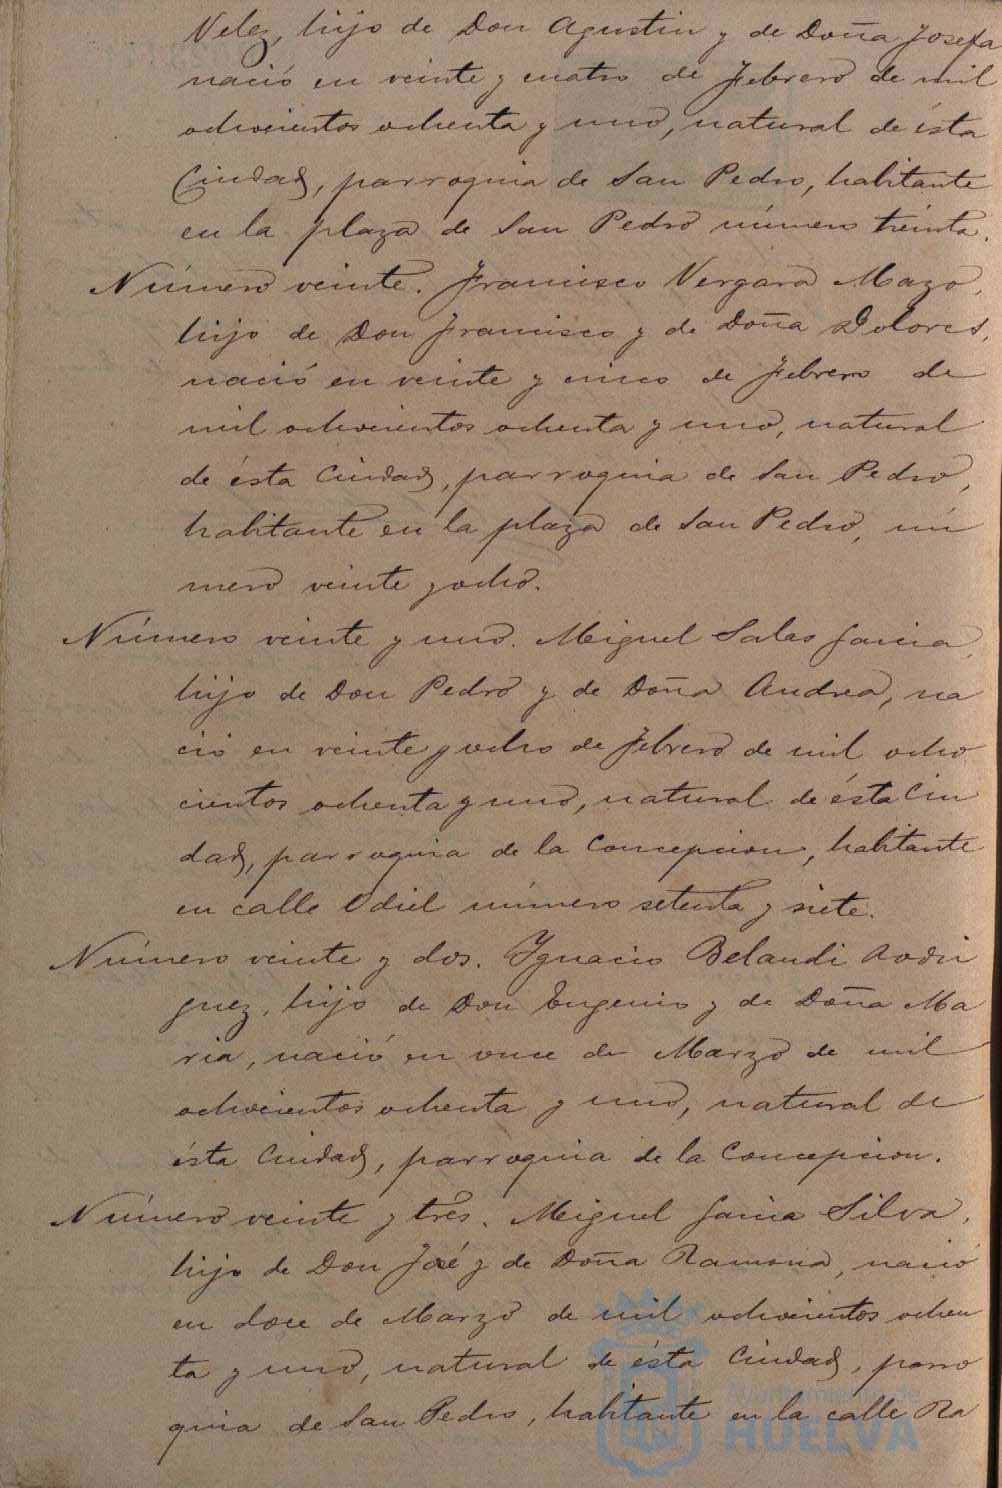 Velez, hijo de Don Agustin y de Doña Josefa
nació en veinte y cuatro de Febrero de mil
ochocientos ochenta y uno, natural de ésta
Ciudad, parroquia de San Pedro, habitante
en la plaza de San Pedro número treinta.
Número veinte. Francisco Vergara Mazo,
hijo de Don Francisco y de Doña Dolores,
nació en veinte y cinco de Febrero de
mil ochocientos ochenta y uno, natural
de ésta Ciudad, parroquia de San Pedro,
habitante en la plaza de San Pedro, nú
mero veinte y ocho.
Número veinte y uno. Miguel Salas Garcia,
hijo de Don Pedro y de Doña Andrea, na
ció en veinte y ocho de Febrero de mil ocho
cientos ochenta y uno, natural de ésta Ciu
dad, parroquia de la Concepcion, habitante
en calle Odiel número setenta y siete.
Número veinte y dos. Ygnacio Belandi Rodri
guez, hijo de Don Eugenio y de Doña Ma
ria, nació en once de Marzo de mil
ochocientos ochenta y uno, natural de
ésta Ciudad, parroquia de la Concepcion.
Número veinte y tres. Miguel Garcia Silva,
hijo de Don José y de Doña Ramona, nació
en doce de Marzo de mil ochocientos ochen
ta y uno, natural de ésta Ciudad, parro
quia de San Pedro, habitante en la calle Ra
Ayuntamiento de
HUELVA